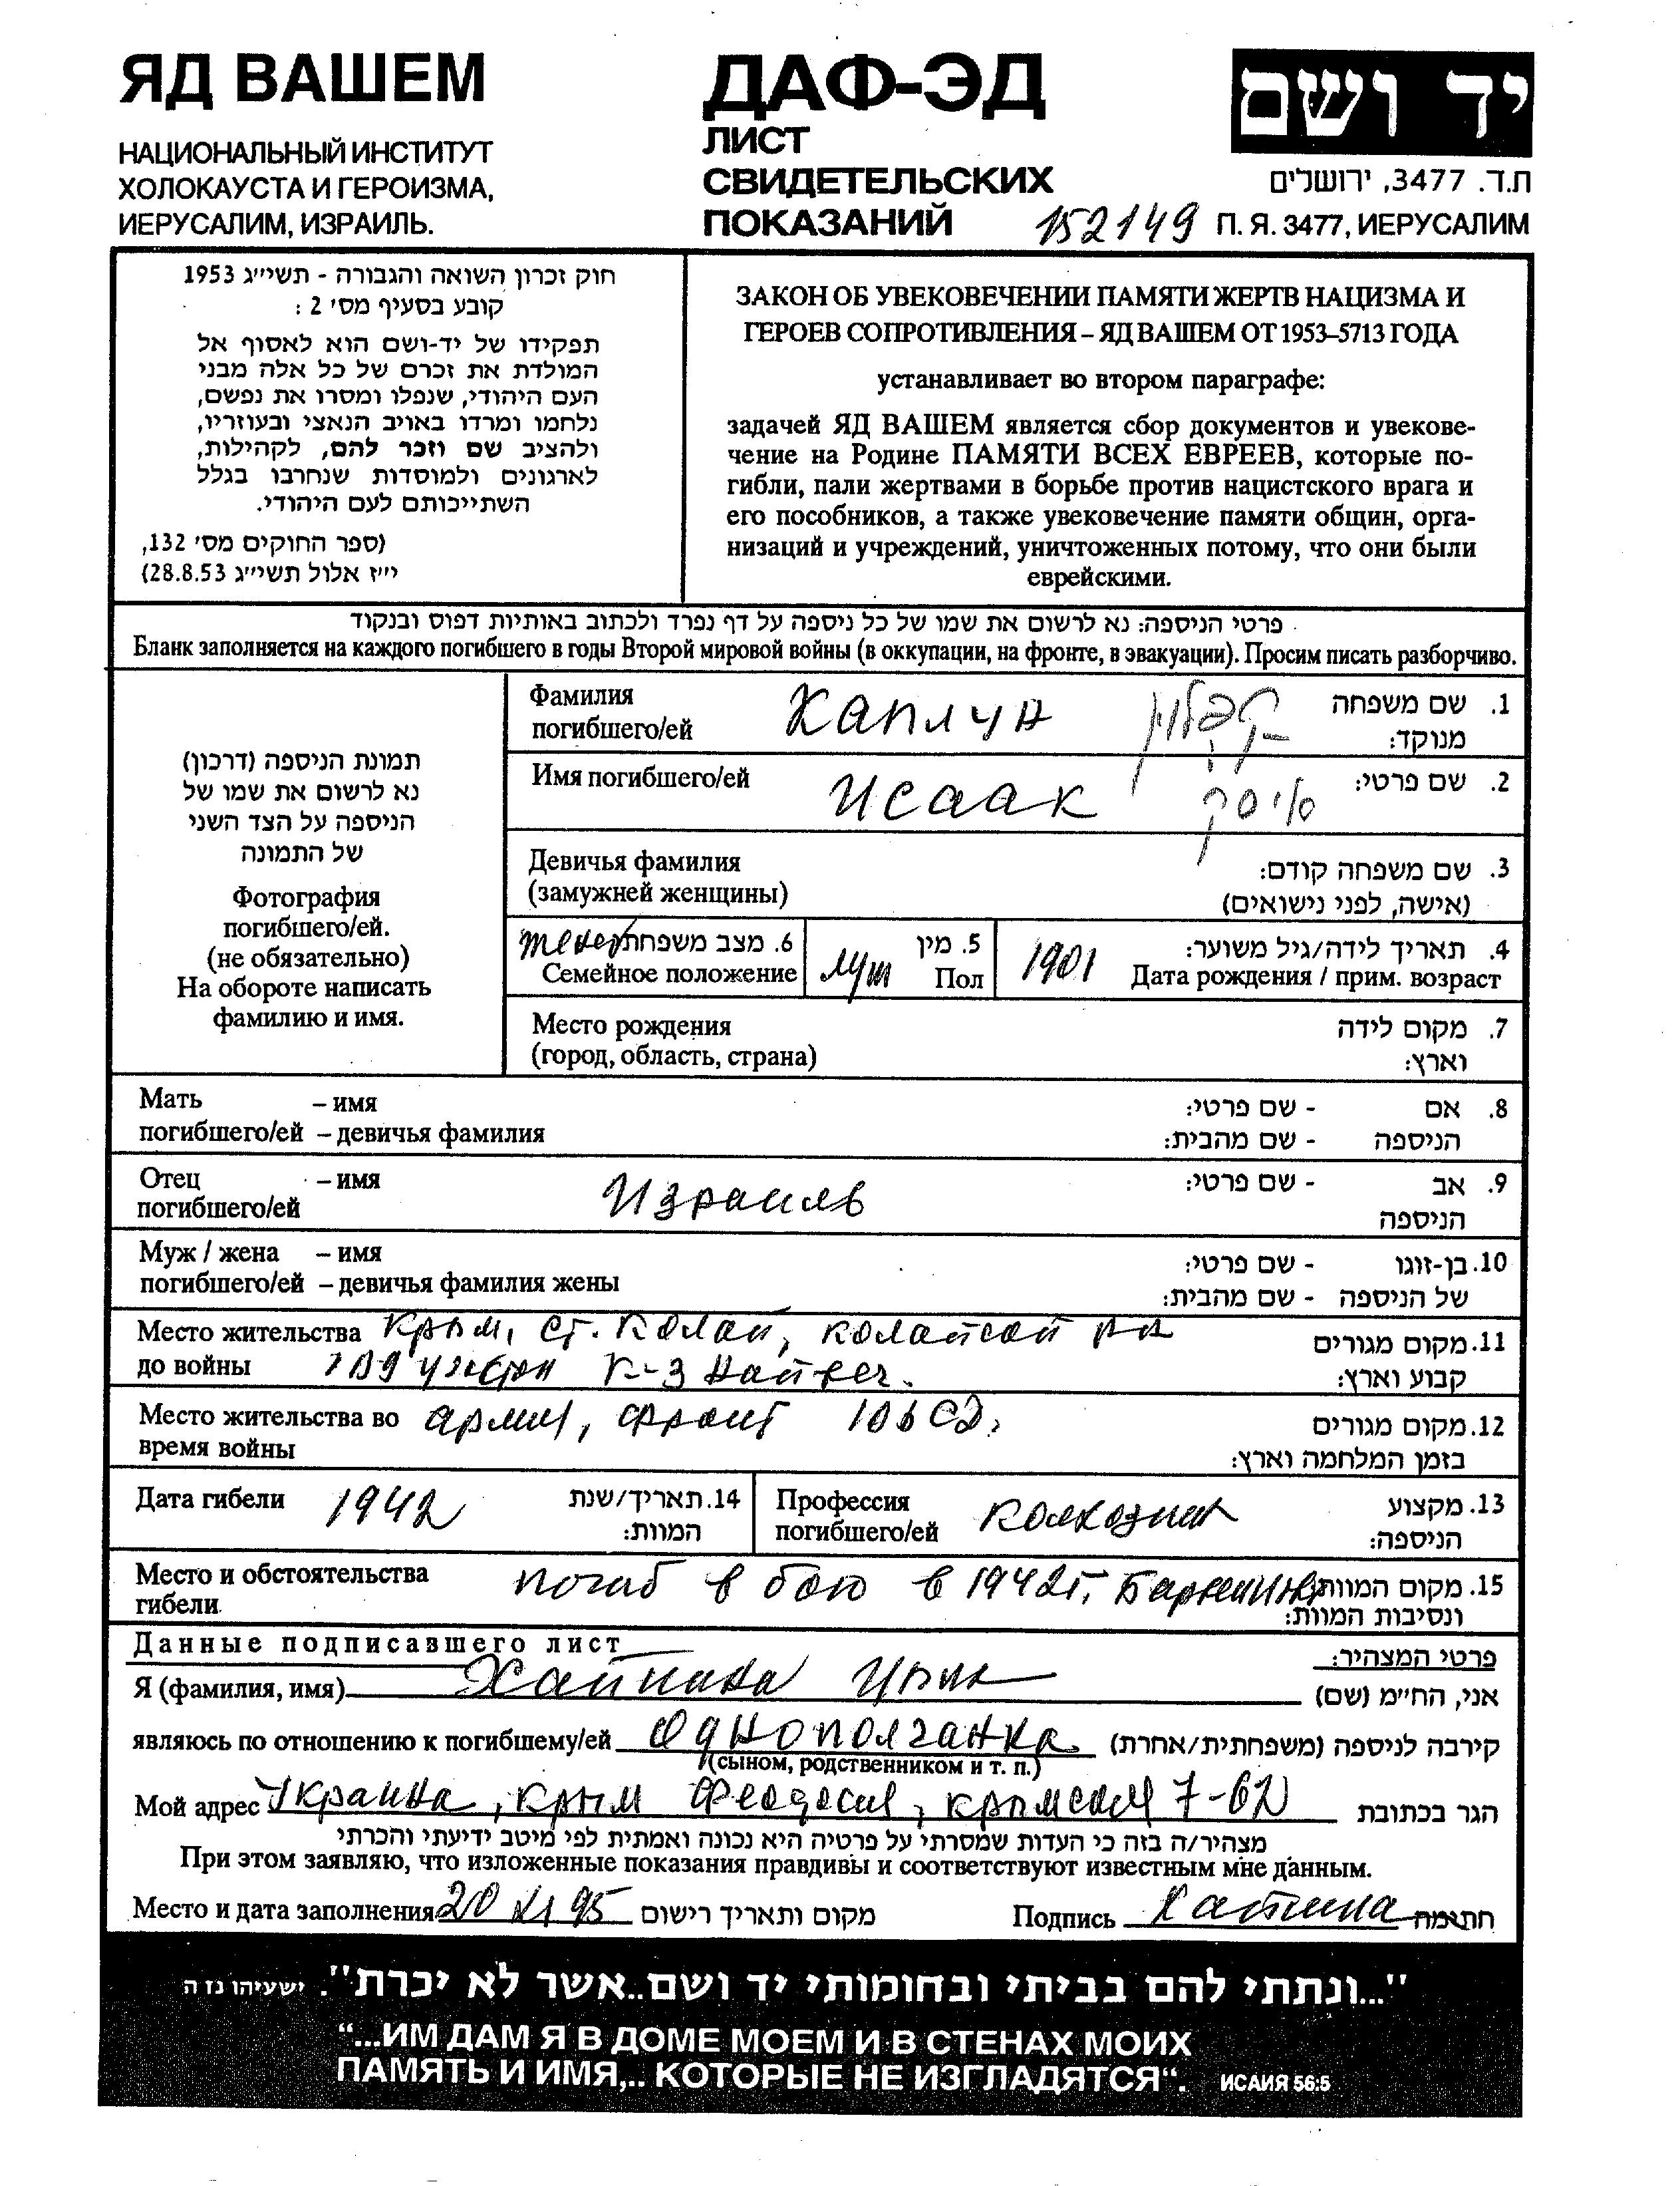 ЯД ВАШЕМ
НАЦИОНАЛЬНЫЙ ИНСТИТУТ
ХОЛОКАУСТА И ГЕРОИЗМА,
ИЕРУСАЛИМ, ИЗРАИЛЬ.
ДАФ-ЭД
ЛИСТ
СВИДЕТЕЛЬСКИХ
ПОКАЗАНИЙ
152149
יד ושם
ת.ד. 3477, ירושלים
П. Я. 3477, ИЕРУСАЛИМ
חוק זכרון השואה והגבורה - תשי״ג 1953
קובע בסעיף מס׳ 2 :
תפקידו של יד-ושם הוא לאסוף אל
המולדת את זכרם של כל אלה מבני
העם היהודי, שנפלו ומסרו את נפשם,
נלחמו ומרדו באויב הנאצי ובעוזריו,
ולהציב שם וזכר להם, לקהילות,
לארגונים ולמוסדות שנחרבו בגלל
השתייכותם לעם היהודי.
(ספר החוקים מס׳ 132,
י״ז אלול תשי״ג 28.8.53)
ЗАКОН ОБ УВЕКОВЕЧЕНИИ ПАМЯТИ ЖЕРТВ НАЦИЗМА И
ГЕРОЕВ СОПРОТИВЛЕНИЯ – ЯД ВАШЕМ ОТ 1953–5713 ГОДА
устанавливает во втором параграфе:
задачей ЯД ВАШЕМ является сбор документов и увекове-
чение на Родине ПАМЯТИ ВСЕХ ЕВРЕЕВ, которые по-
гибли, пали жертвами в борьбе против нацистского врага и
его пособников, а также увековечение памяти общин, орга-
низаций и учреждений, уничтоженных потому, что они были
еврейскими.
פרטי הניספה: נא לרשום את שמו של כל ניספה על דף נפרד ולכתוב באותיות דפוס ובנקוד
Бланк заполняется на каждого погибшего в годы Второй мировой войны (в оккупации, на фронте, в эвакуации). Просим писать разборчиво.
תמונת הניספה (דרכון)
נא לרשום את שמו של
הניספה על הצד השני
של התמונה
Фотография
погибшего/ей.
(не обязательно)
На обороте написать
фамилию и имя.
Фамилия Каплун קפלון 1. שם משפחה
погибшего/ей מנוקד:
Имя погибшего/ей Исаак איסק 2. שם פרטי:
Девичья фамилия 3. שם משפחה קודם:
(замужней женщины) (אישה, לפני נישואים)
женат 6. מצב משפחתי
Семейное положение
муж 5. מין
Пол
1901 4. תאריך לידה/גיל משוער:
Дата рождения / прим. возраст
Место рождения 7. מקום לידה
(город, область, страна) וארץ:
Мать – имя 8. אם - שם פרטי:
погибшего/ей – девичья фамилия הניספה - שם מהבית:
Отец – имя Израиль 9. אב - שם פרטי:
погибшего/ей הניספה
Муж / жена – имя 10. בן-זוגו - שם פרטי:
погибшего/ей – девичья фамилия жены של הניספה - שם מהבית:
Место жительства Крым, ст. Колаи, колайский р-н 11. מקום מגורים
до войны к-з Найвег. קבוע וארץ:
Место жительства во армии, фронт 106 СД. 12. מקום מגורים
время войны בזמן המלחמה וארץ:
Дата гибели 1942 14. תאריך/שנת
המוות:
Профессия колхозник 13. מקצוע
погибшего/ей הניספה:
Место и обстоятельства погиб в бою в 1942г. 15. מקום המוות
гибели. ונסיבות המוות:
Данные подписавшего лист פרטי המצהיר:
Я (фамилия, имя) Хайкина אני, הח״מ (שם)
являюсь по отношению к погибшему/ей Однополчанка קירבה לניספה (משפחתית/אחרת)
(сыном, родственником и т. п.)
Мой адрес Украина, крым Феодосия, крымская 7-62 הגר בכתובת
מצהיר/ה בזה כי העדות שמסרתי על פרטיה היא נכונה ואמתית לפי מיטב ידיעתי והכרתי
При этом заявляю, что изложенные показания правдивы и соответствуют известным мне данным.
Место и дата заполнения 20 XI 95 מקום ותאריך רישום Подпись Хайкина חתימה
"...ונתתי להם בביתי ובחומותי יד ושם...אשר לא יכרת". ישעיהו נז ה
“...ИМ ДАМ Я В ДОМЕ МОЕМ И В СТЕНАХ МОИХ
ПАМЯТЬ И ИМЯ,.. КОТОРЫЕ НЕ ИЗГЛАДЯТСЯ“. ИСАИЯ 56:5